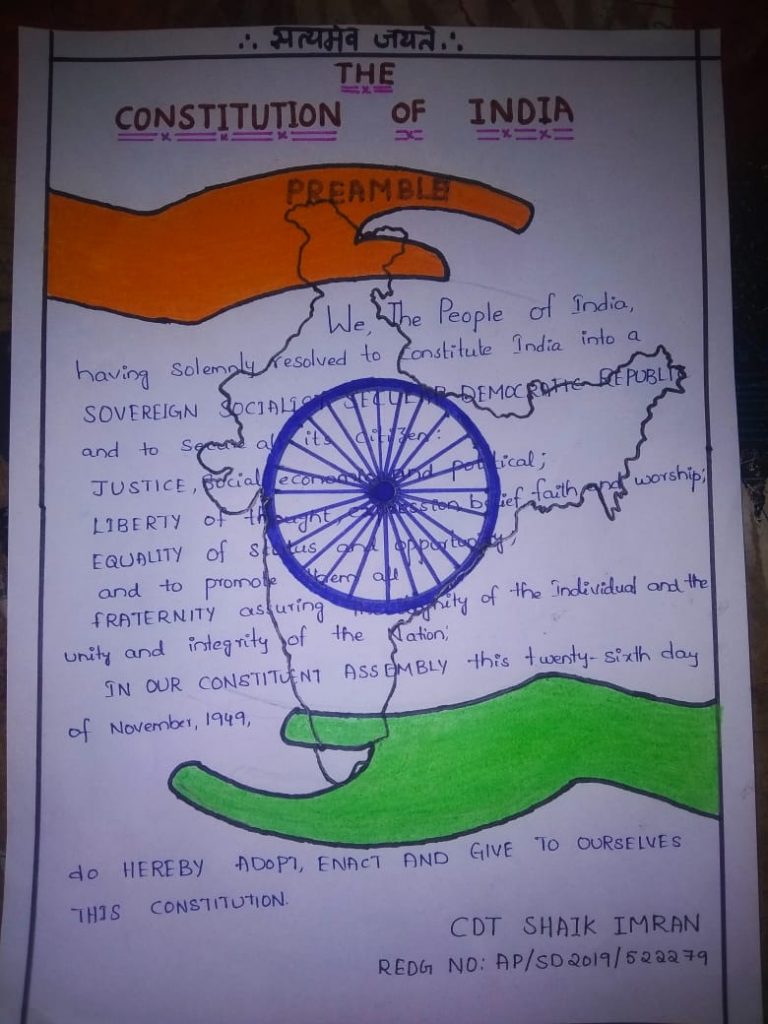 ∴ सत्यमेव जयते ∴
THE
CONSTITUTION OF INDIA
PREAMBLE
We, The People of India,
having solemnly resolved to Constitute India into a
SOVEREIGN SOCIALIST SECULAR DEMOCRATIC REPUBLI
and to secure all its citizen:
JUSTICE, social economic and political;
LIBERTY of thought, expression belief faith and worship;
EQUALITY of status and opportunity;
and to promote them all
fRATERNITY assuring the dignity of the Individual and the
unity and integrity of the Nation;
IN OUR CONSTITUENT ASSEMBLY this twenty-sixth day
of November, 1949,
do HEREBY ADOPT, ENACT AND GIVE TO OURSELVES
THIS CONSTITUTION.
CDT SHAIK IMRAN
REDG NO: AP/SD2019/522279